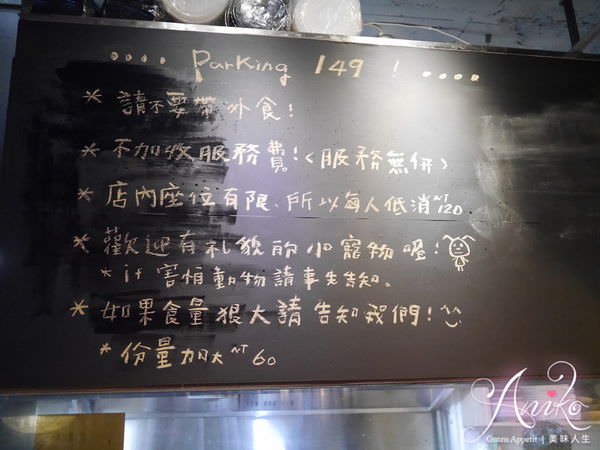 .... Parking 149 ! ....
* 請不要帶外食!
* 不加收服務費!<服務無價>
* 店內座位有限、所以每人低消NT120
* 歡迎有礼貌的小寵物喔!
* if 害怕動物請事先告知。
* 如果食量很大請告知我們!
* 份量加大NT60
Aniko
Guten Appetit | 美味人生